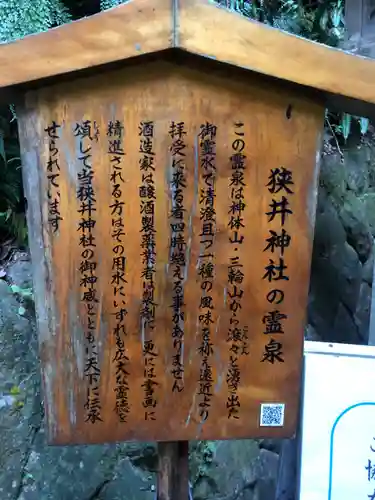 狭井神社の霊泉
この霊泉は神体山 三輪山から滾々と湧き出た
こんこん
御霊水で清澄且つ一種の風味を称え遠近より
拝受に来る者四時絶える事がありません
酒造家は醸酒製薬業者は製剤に 更には書画に
精進される方はその用水といずれも広大な霊徳を
頌して当狭井神社の御神威とともに天下に伝承
しょう
せられています